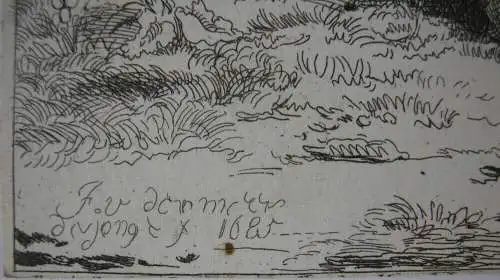 J. v der meer
de jonge f 1685